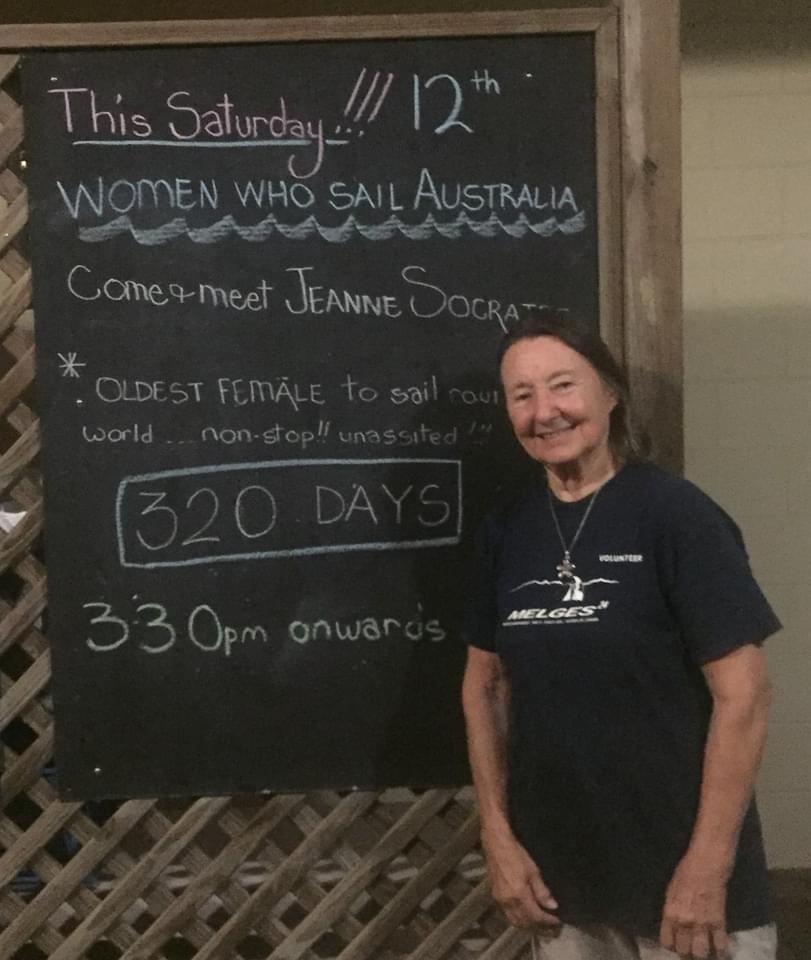 This Saturday!!! 12th
WOMEN WHO SAIL AUSTRALIA
Come & meet JEANNE SOCRAT
* OLDEST FEMALE to sail
world ... non-stop!! unassited !!!
320 DAYS
3.30pm onwards
VOLUNTEER
MELGES 24